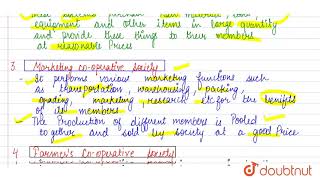 These societies maintain raw material, tools
equipment and other items in large quantity
and provide these things to their members
at reasonable Prices
3. Marketing co-operative Society
- It performs various marketing functions such
as transportation, warehousing, packing,
grading, marketing research etc for the benefits
of its members
- The Production of different members is Pooled
together and sold by society at a good Price
4 Farmer's Co-operative Society
doubtnut